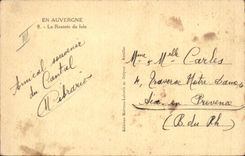 EN AUVERGNE
8. - La Rentrée du foin
III
Amical souvenir
du Cantal
Mme & Melle Carles
4, Traverse Notre Dame
Aix en Provence
(B. du Rh)